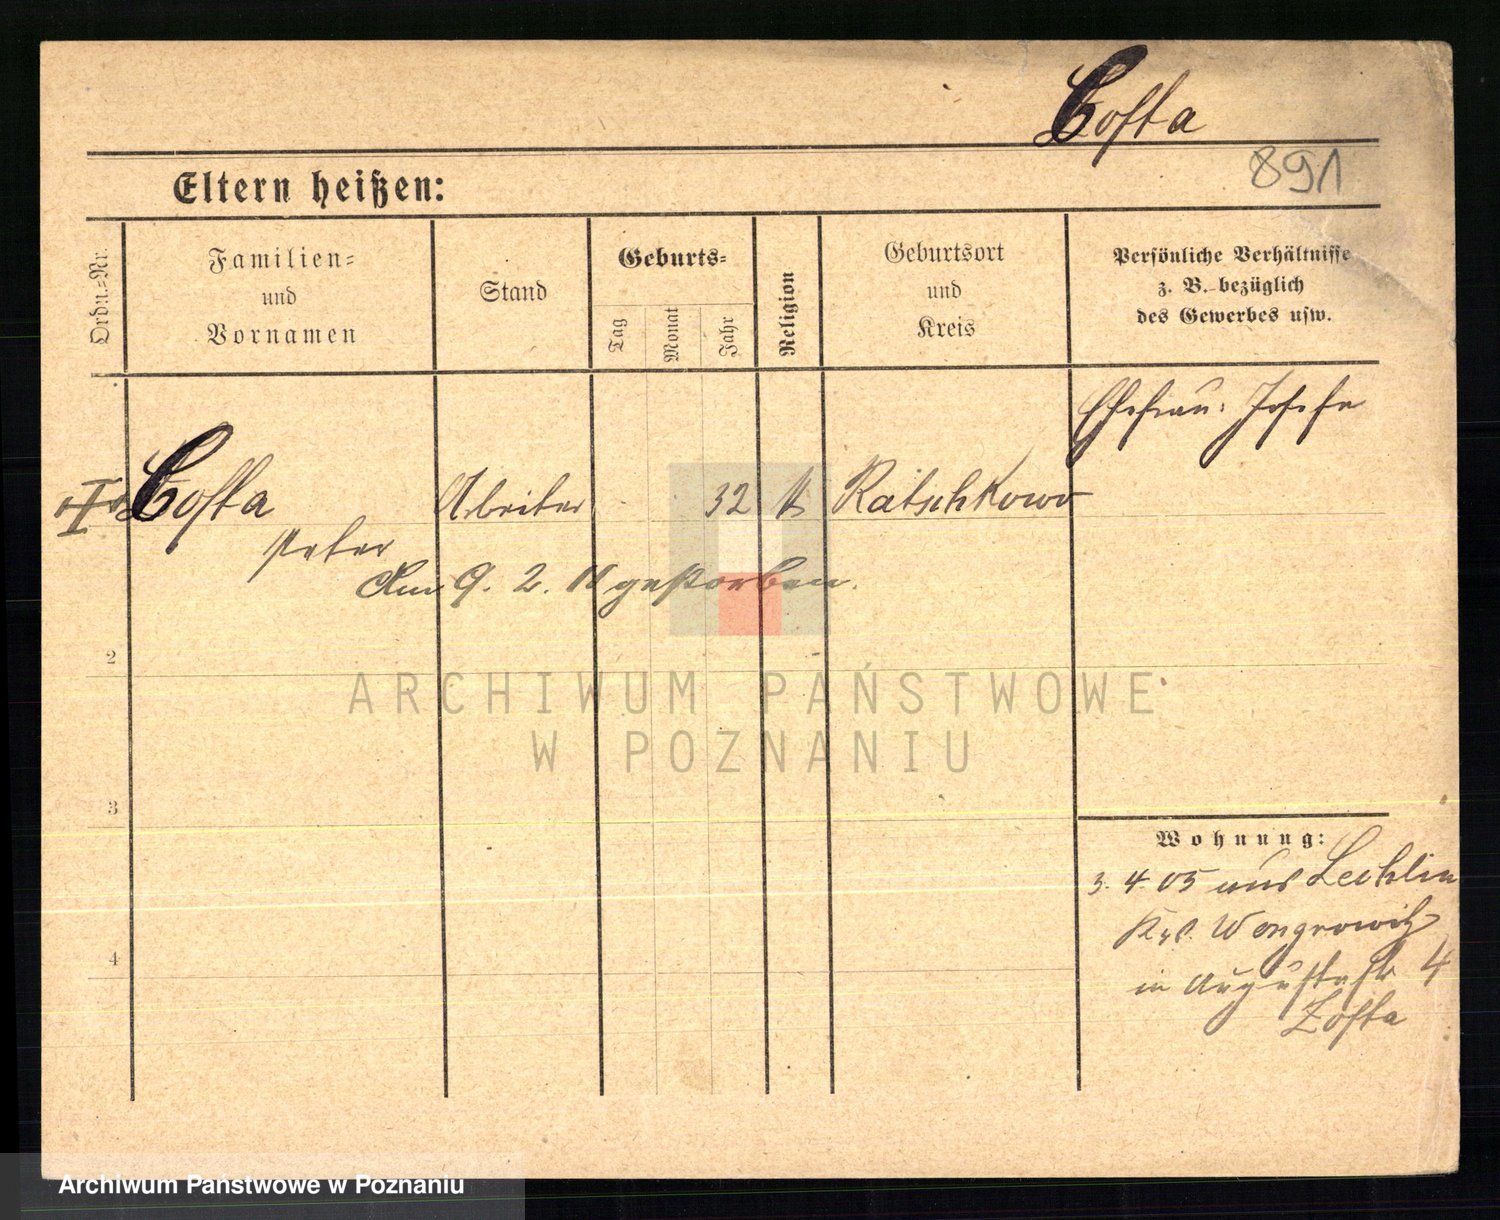 Costa
891
Eltern heißen:
Ordn.-Nr.
Familien-
und
Vornamen
Stand
Geburts-
Tag
Monat
Jahr
Religion
Geburtsort
und
Kreis
Persönliche Verhältnisse
z. B. bezüglich
des Gewerbes usw.
Ehefrau: Josefa
Costa Arbeiter 32 k Ratschkowo
Peter
Am 9. 2. 11 gestorben.
2
ARCHIWUM PAŃSTWOWE
W POZNANIU
3
Wohnung:
3. 4. 05 aus Lechlin
Krs. Wongrowitz
4
in Augustastr 4
Zosta
Archiwum Państwowe w Poznaniu